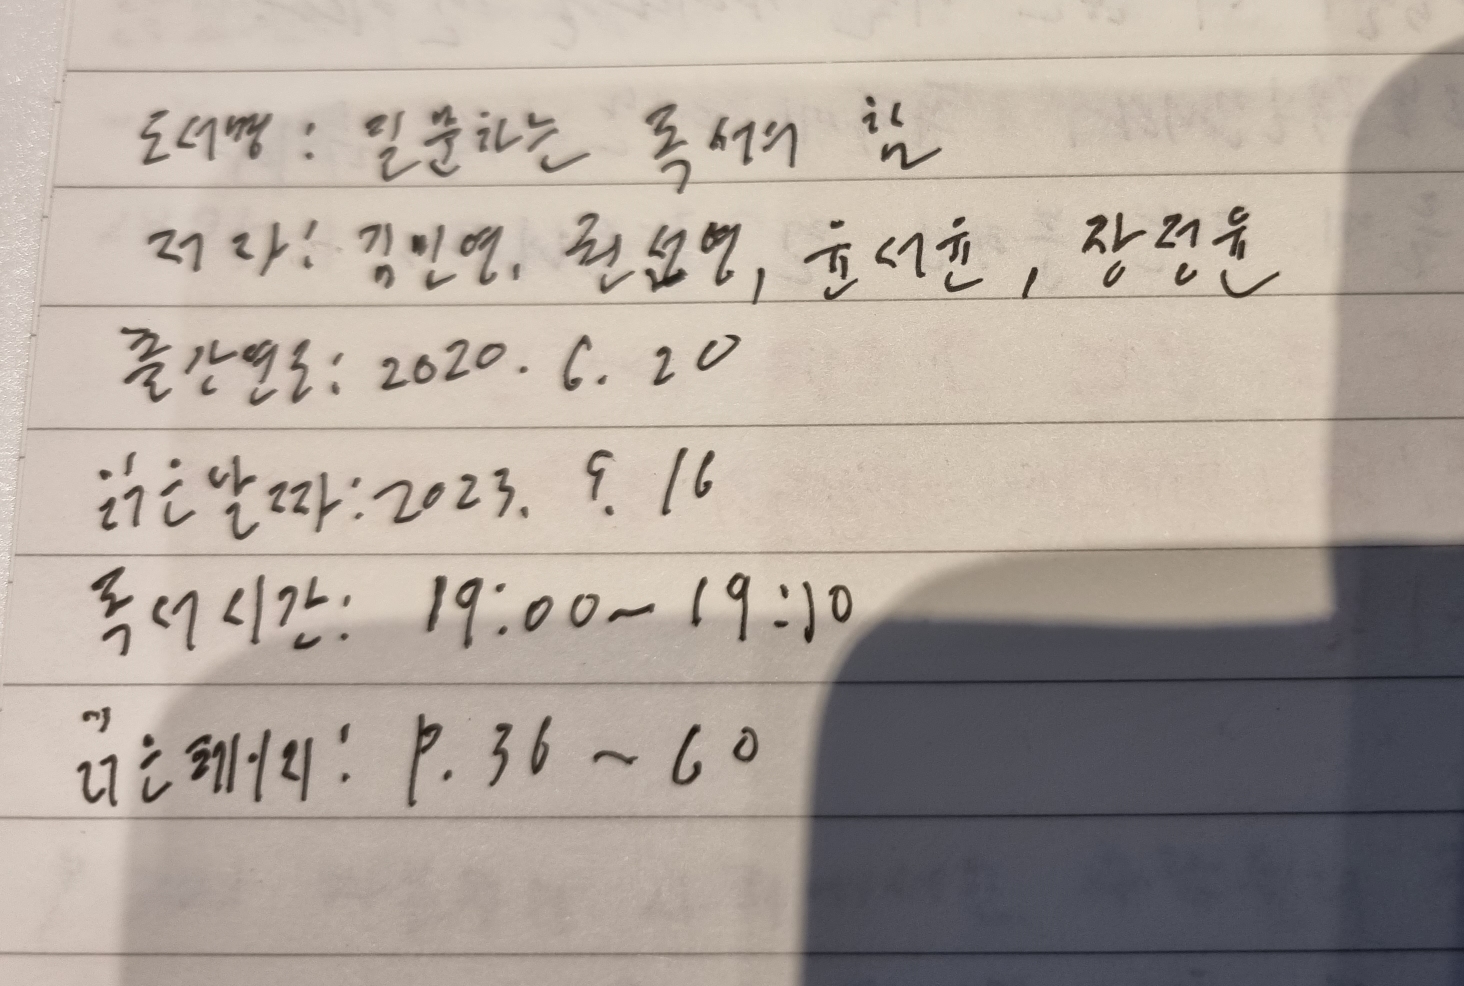 도서명 : 질문하는 독서의 힘
저자 : 김민영, 권선영, 윤석윤, 장정윤
출간연도 : 2020. 6. 20
읽은날짜 : 2023. 9. 16
독서시간 : 19:00~19:10
읽은페이지 : P. 36 ~ 60